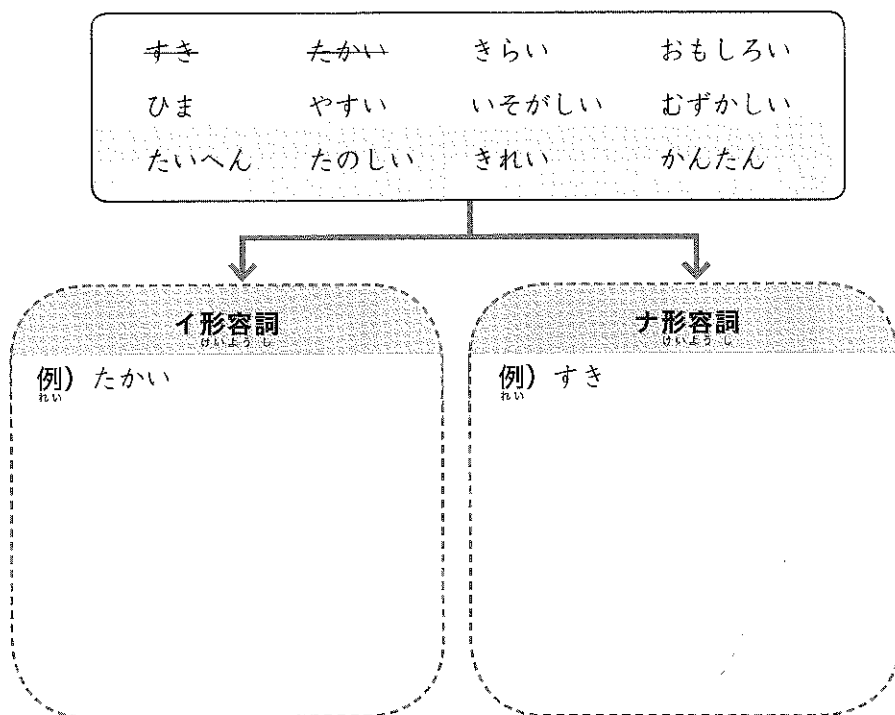 すき たかい きらい おもしろい
ひま やすい いそがしい むずかしい
たいへん たのしい きれい かんたん
イ形容詞
けいようし
例) たかい
れい
ナ形容詞
けいようし
例) すき
れい